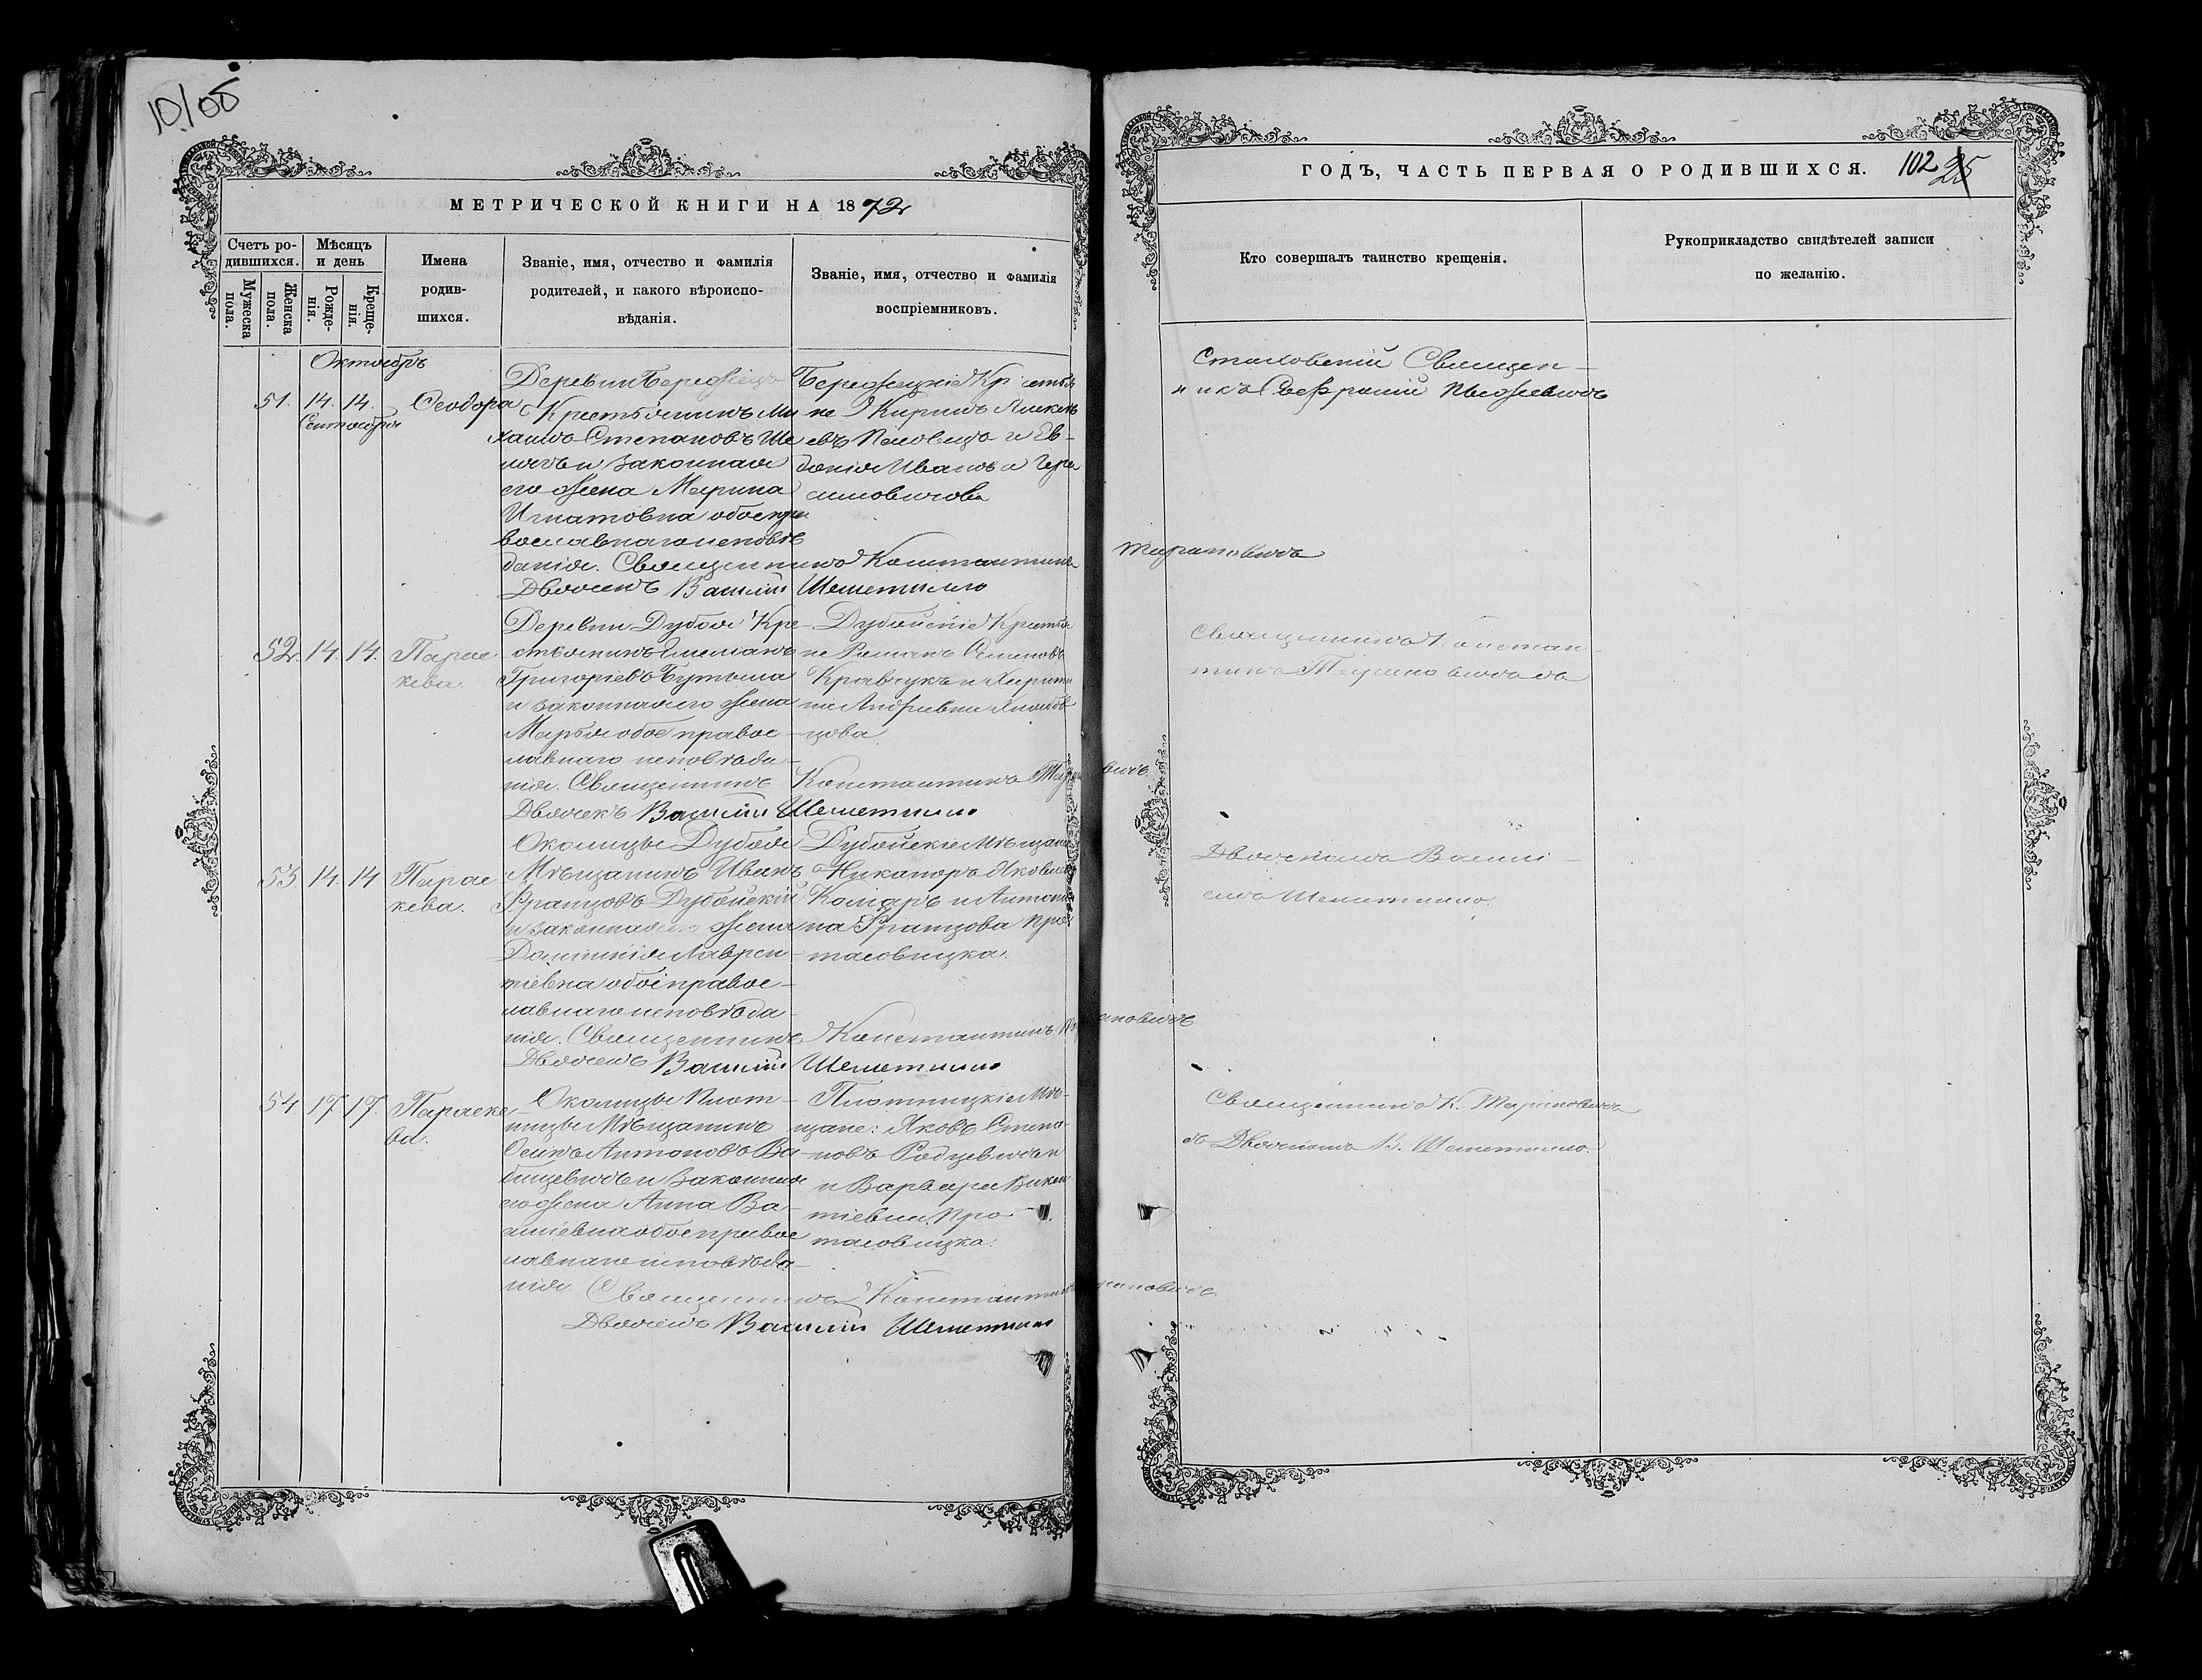 10/об
МЕТРИЧЕСКОЙ КНИГИ НА 1872
Счетъ ро-
дившихся.
Мѣсяцъ
и день
Мужеска
пола.
Женска
пола.
Рожде-
нія.
Креще-
нія.
Имена
родив-
шихся.
Званіе, имя, отчество и фамилія
родителей, и какого вѣроиспо-
вѣданія.
Званіе, имя, отчество и фамилія
воспріемниковъ.
Октябрь
51. 14. 14.
Сентября
Ѳеодора
Деревни
Крестьянинъ Ми
хаилъ Степановъ Ше
и законная
его жена Марина
Игнатовна обое пра
вославнаго исповѣ
данія. Священникъ Константинъ
Дьячекъ Василій Шеметилло
Кирилъ Алексѣ
евъ и Ев-
докія Иванова Гера
симовичова
52. 14. 14.
Парас
кева.
Деревни Дубоя Кре-
стьянинъ Емеліанъ
Григоріевъ
и законная его жена
Марья обое правос-
лавнаго исповѣда-
нія. Священникъ Константинъ
Дьячекъ Василій Шеметилло
Дубойскіе Крестья
не Романъ Семеновъ
Кравчукъ и Харити
на Андреевна
цова
53. 14. 14
Парас
кева.
Околицы Дубоя
Мѣщанинъ Иванъ
Францовъ Дубойскій
и законная его жена
Доминикія Лаврен-
тіевна обое правос-
лавнаго исповѣда-
нія. Священникъ Константинъ
Дьячекъ Василій Шеметилло
Дубойскіе Мѣщане
Никаноръ Яковлевъ
Комаръ и Антони
на Францова Про
тасовицка.
54 17 17.
Параске
ва.
Околицы Плот-
ницы Мѣщанинъ
Осипъ Антоновъ Ва-
и законная
его жена Анна Ва-
силіевна обое правос
лавнаго исповѣда-
нія. Священникъ Константинъ
Дьячекъ Василій Шеметилло
Плотницкіе Мѣ-
щане: Яковъ Степа-
новъ Родцевичъ и
и Варвара Викен
тіевна Про
тасовицка.
ГОДЪ, ЧАСТЬ ПЕРВАЯ О РОДИВШИХСЯ. 102 25
Кто совершалъ таинство крещенія.
Рукоприкладство свидѣтелей записи
по желанію.
Стаховскій Священ-
никъ
Тарановичъ
Священникъ Констан-
тинъ Тарановичъ съ
Дьячкомъ Васи-
емъ Шеметилло.
Священникъ К. Тарановичъ
съ Дьячкомъ В. Шеметилло.